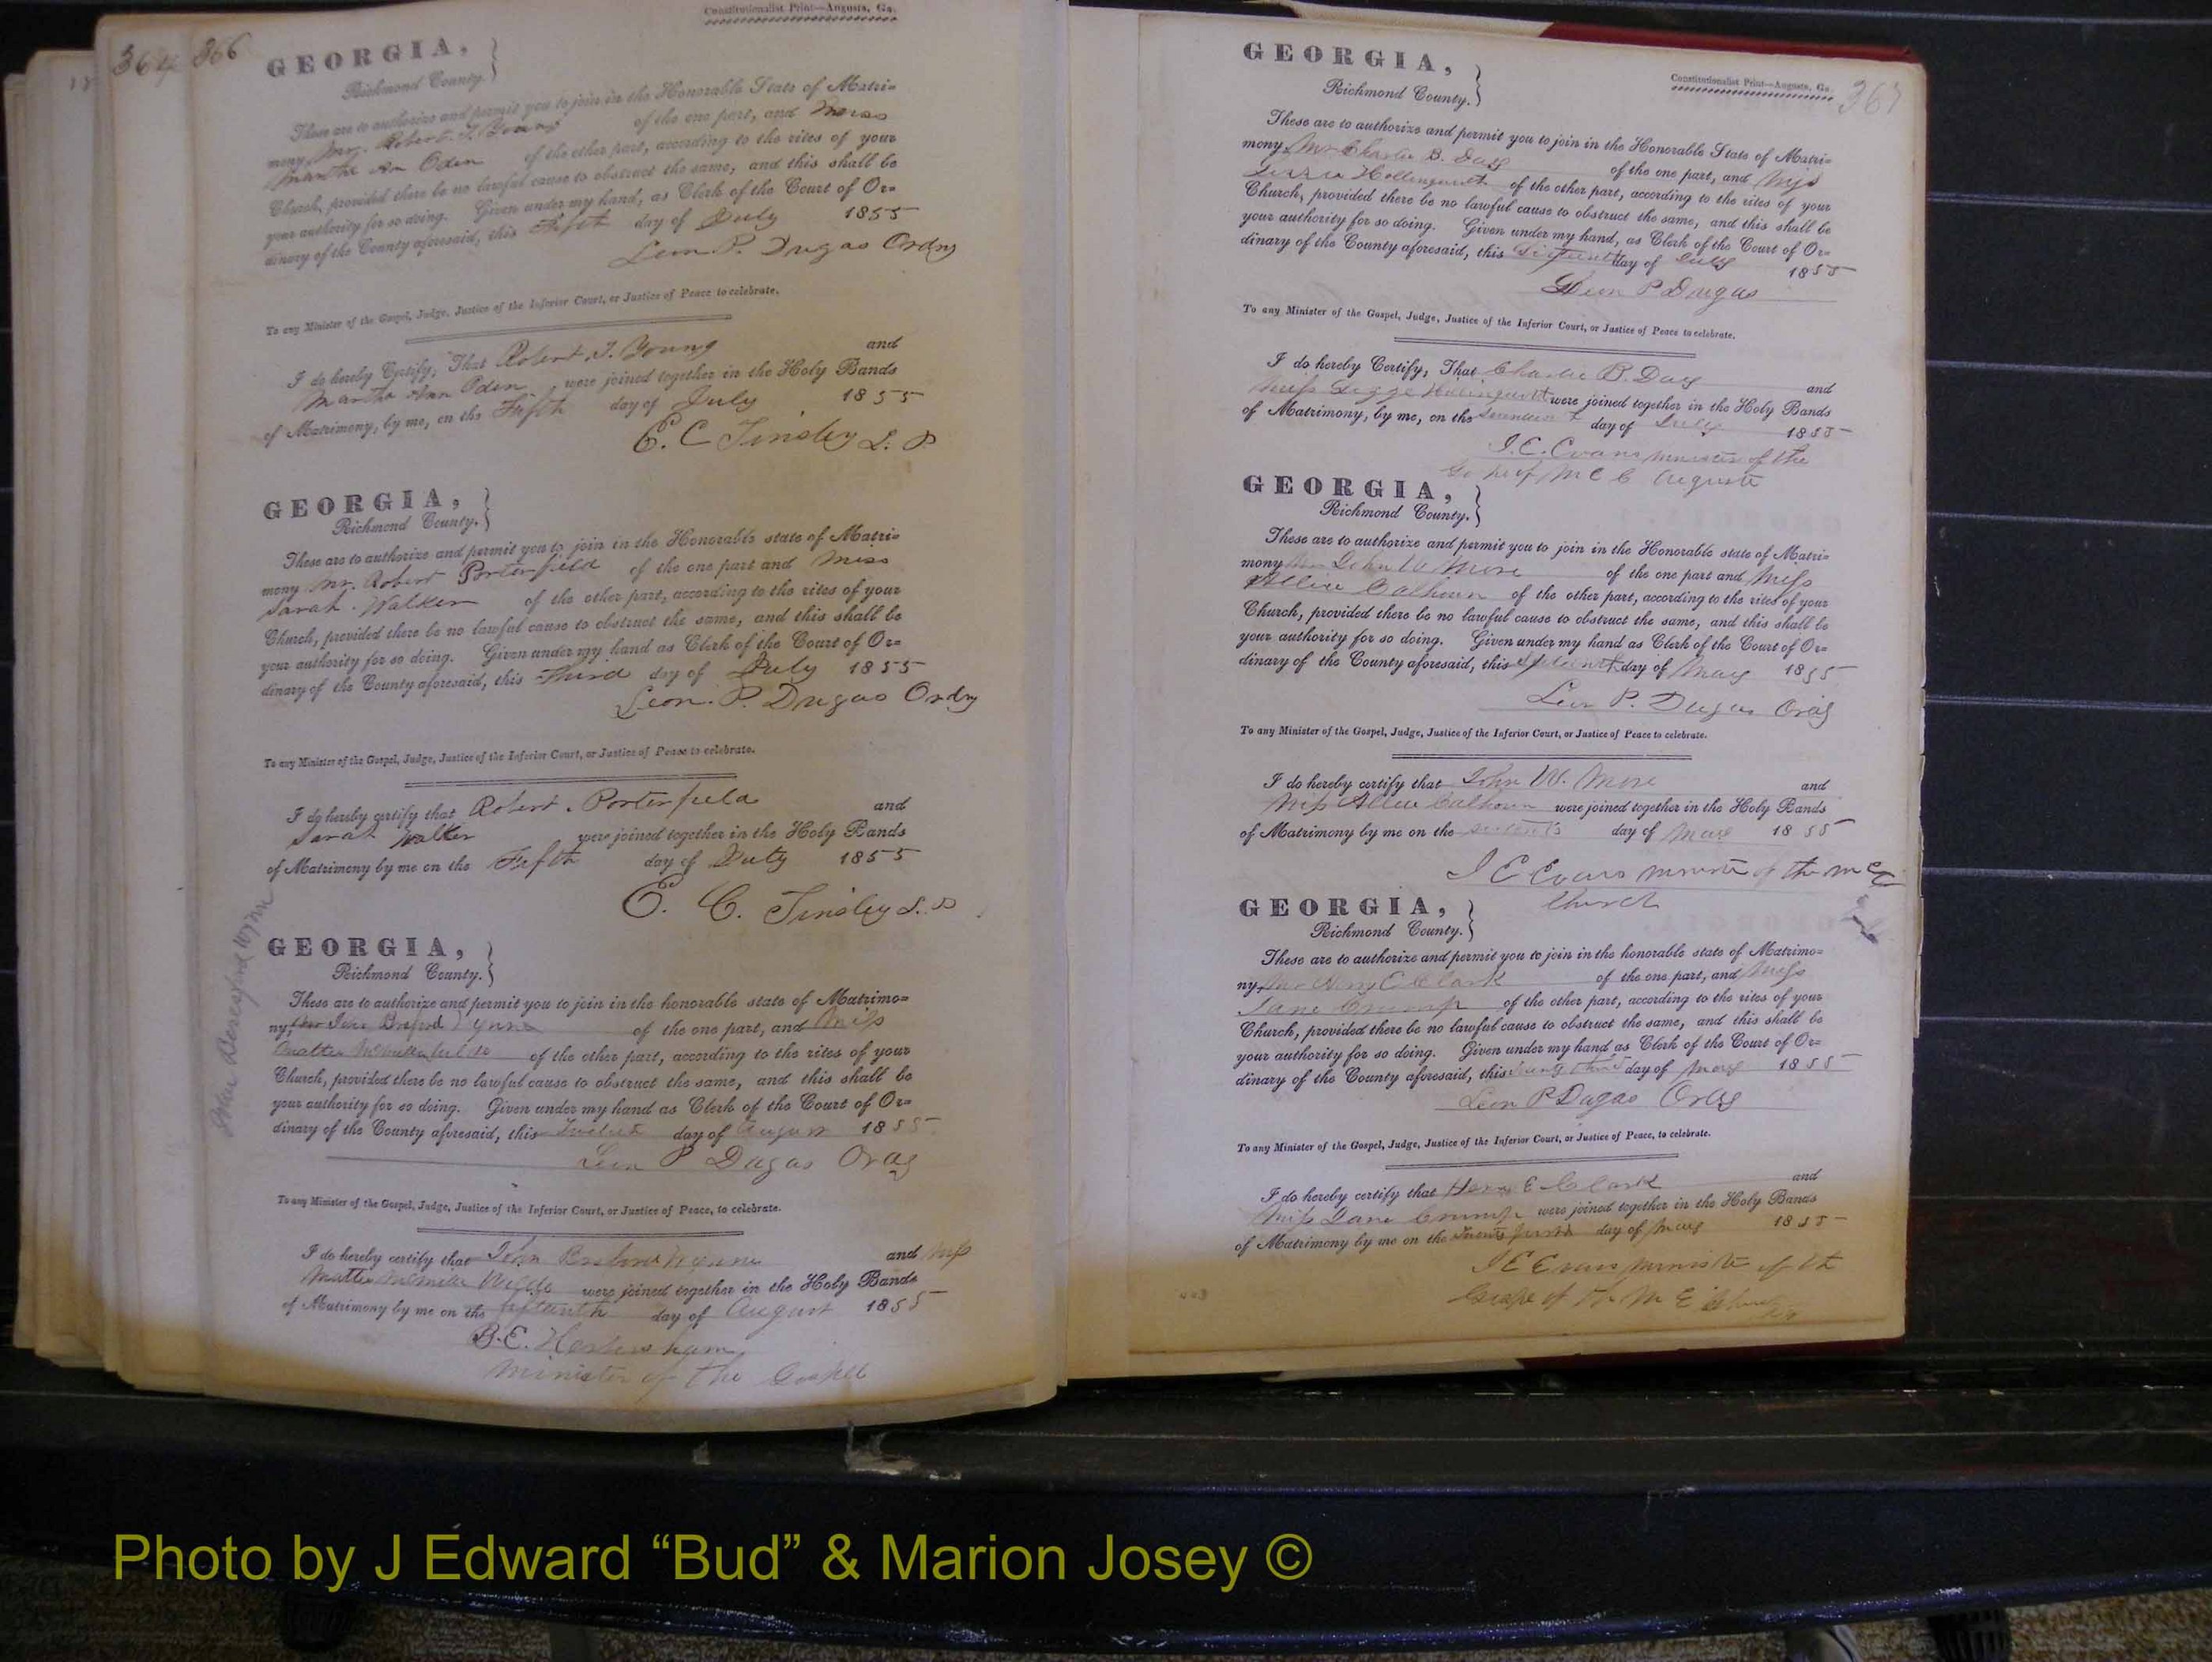 364 366
Constitutionalist Print—Augusta, Ga.
GEORGIA,
Richmond County.
These are to authorize and permit you to join in the Honorable State of Matri=
mony Mr. Robert. J. Young of the one part, and
Martha An Oden of the other part, according to the rites of your
Church, provided there be no lawful cause to obstruct the same, and this shall be
your authority for so doing. Given under my hand, as Clerk of the Court of Or=
dinary of the County aforesaid, this Fifth day of July 1855
Leon. P. Dugas Ordny
To any Minister of the Gospel, Judge, Justice of the Inferior Court, or Justice of Peace to celebrate.
I do hereby Certify, That Robert. J. Young and
Martha Ann Oden were joined together in the Holy Bands
of Matrimony, by me, on the Fifth day of July 1855
E. C Tinsley
GEORGIA,
Richmond County.
These are to authorize and permit you to join in the Honorable state of Matri=
mony Mr. Robert Porterfield of the one part and Miss
Sarah. Walker of the other part, according to the rites of your
Church, provided there be no lawful cause to obstruct the same, and this shall be
your authority for so doing. Given under my hand as Clerk of the Court of Or=
dinary of the County aforesaid, this Third day of July 1855
Leon. P. Dugas Ordny
To any Minister of the Gospel, Judge, Justice of the Inferior Court, or Justice of Peace to celebrate.
I do hereby certify that Robert. Porterfield and
Sarah Walker were joined together in the Holy Bands
of Matrimony by me on the Fifth day of July 1855
E. C. Tinsley
John Beresford Wynne
GEORGIA,
Richmond County.
These are to authorize and permit you to join in the honorable state of Matrimo=
ny, Mr John Wynne of the one part, and Miss
of the other part, according to the rites of your
Church, provided there be no lawful cause to obstruct the same, and this shall be
your authority for so doing. Given under my hand as Clerk of the Court of Or=
dinary of the County aforesaid, this day of August 1855
Leon P Dugas Ordy
To any Minister of the Gospel, Judge, Justice of the Inferior Court, or Justice of Peace, to celebrate.
I do hereby certify that John Wynne and Miss
Wilde were joined together in the Holy Bands
of Matrimony by me on the fifteenth day of August 1855
B. E. Habersham
Minister of the Gospell
367
Constitutionalist Print—Augusta, Ga.
GEORGIA,
Richmond County.
These are to authorize and permit you to join in the Honorable State of Matri=
mony Mr Charlie B. Day of the one part, and Miss
of the other part, according to the rites of your
Church, provided there be no lawful cause to obstruct the same, and this shall be
your authority for so doing. Given under my hand, as Clerk of the Court of Or=
dinary of the County aforesaid, this day of July 1855
Leon P Dugas
To any Minister of the Gospel, Judge, Justice of the Inferior Court, or Justice of Peace to celebrate.
I do hereby Certify, That Charlie B. Day and
Miss were joined together in the Holy Bands
of Matrimony, by me, on the day of July 1855
J. E. Evans minister of the
Augusta
GEORGIA,
Richmond County.
These are to authorize and permit you to join in the Honorable state of Matri=
mony Mr John W More of the one part and Miss
Calhoun of the other part, according to the rites of your
Church, provided there be no lawful cause to obstruct the same, and this shall be
your authority for so doing. Given under my hand as Clerk of the Court of Or=
dinary of the County aforesaid, this day of May 1855
Leon P. Dugas Ordy
To any Minister of the Gospel, Judge, Justice of the Inferior Court, or Justice of Peace to celebrate.
I do hereby certify that John W. More and
Miss Calhoun were joined together in the Holy Bands
of Matrimony by me on the day of 1855
J E Evans minister of the M E
Church
GEORGIA,
Richmond County.
These are to authorize and permit you to join in the honorable state of Matrimo=
ny, Mr Henry E Clark of the one part, and Miss
Jane Crump of the other part, according to the rites of your
Church, provided there be no lawful cause to obstruct the same, and this shall be
your authority for so doing. Given under my hand as Clerk of the Court of Or=
dinary of the County aforesaid, this day of May 1855
Leon P Dugas Ordy
To any Minister of the Gospel, Judge, Justice of the Inferior Court, or Justice of Peace, to celebrate.
I do hereby certify that Henry E Clark and
Miss Jane Crump were joined together in the Holy Bands
of Matrimony by me on the day of May 1855
J E Evans minister of the
M E Church
Photo by J Edward “Bud” & Marion Josey ©